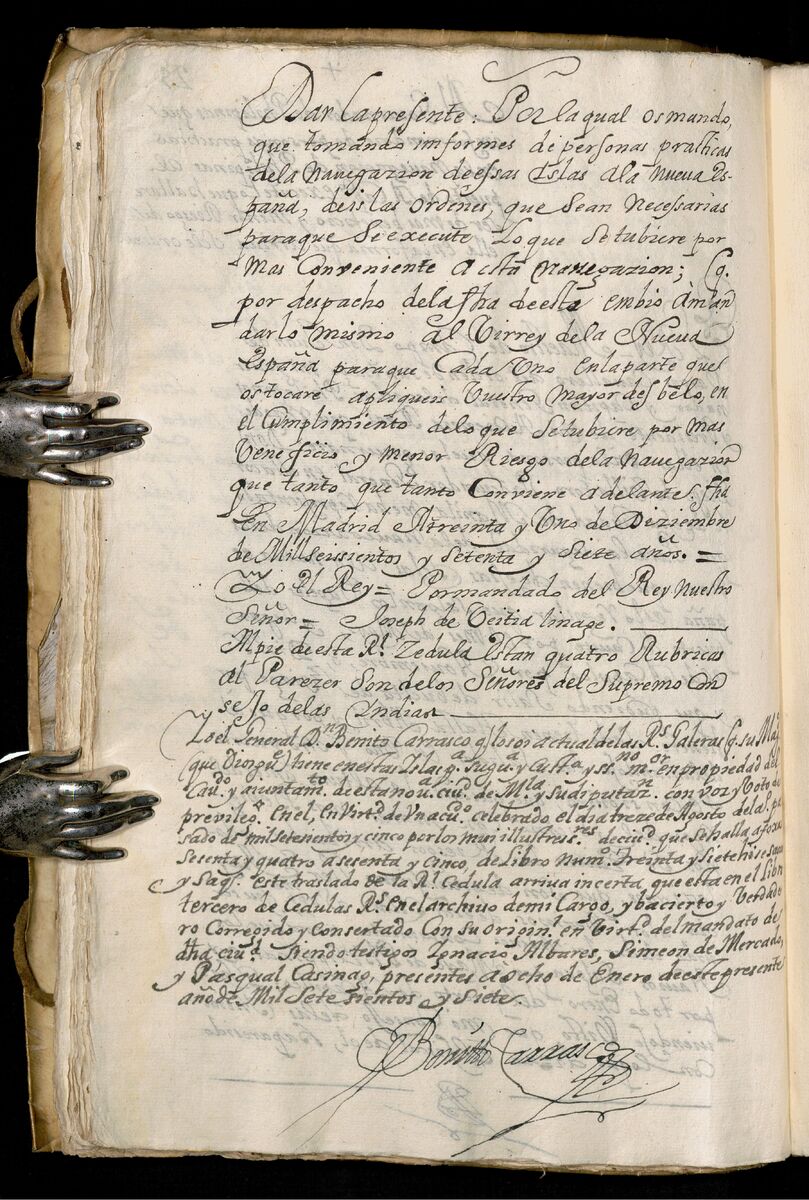 Dar la presente: Por la qual os mando,
que tomando imformes de personas practicas
dela Navegazion de essas Islas ala Nueva Es-
paña, deis las ordenes, que sean Necessarias
paraque se execute Lo que se tubiere por
mas Conveniente a esta navegazion; q.
por despacho dela fha de esta embio àman
darlo mismo al Virrey dela Nueva
España paraque Cada Uno enlaparte que
os tocare apliqueis Vuestro mayor desbelo, en
el Cumplimiento delo que se tubiere por mas
Veneficio y menor Riesgo dela Navegazion
que tanto que tanto Conviene adelante. fha
En Madrid Atreinta y Uno de Diziembre
de Mill seissientos y setenta y siete años. =
Yo el Rey = Por mandado del Rey nuestro
Señor = Joseph de Veitia linage.
Al pie de esta Rl. Zedula estan quatro Rubricas
al Parezer son delos Señores del Supremo Con
sejo delas Indias
Yo el General Dn. Benito Carrasco actual de las Rs. Galeras q. su Magd.
(que Dios gue.) tiene en estas Islas y ss.no mor. en propiedad del
Cavdo. y aiuntamto. de esta nou. ciud. de Mla. y su diputazn. con voz y Voto de
previlego. en el, En Virtd. de Vn acudo. celebrado el dia treze de Agosto del año pa
sado de mil setesentos y cinco por los mui illustres ss.res de ciud. que se halla a foxas
sesenta y quatro a sesenta y cinco, de Libro Numo. Treinta y siete hise sacar
y saqe. este traslado de la Rl. Cedula arriua incerta, que esta en el Libro
tercero de Cedulas Rs. En el archiuo de mi Cargo, y ba cierto y Verdade
ro Corregido y Consertado Con su originl. en Virtd. del mandato de
dha ciud. siendo testigos Ignacio Albares, Simeon de Mercado,
y Pasqual Casinag, presentes a ocho de Enero de este presente
año de Mil Sete sientos y siete.
Benitto Carrasco